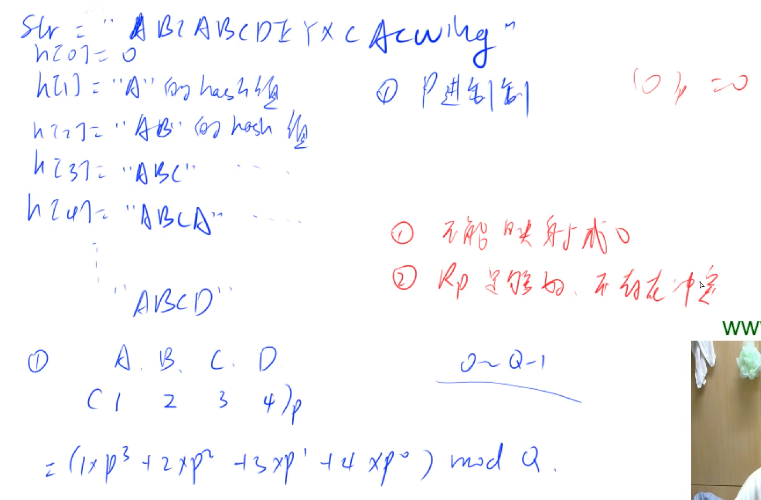 Str = "ABCABCDEYXCAcwing"
h[0] = 0
h[1] = "A" 的 hash 值
h[2] = "AB" 的 hash 值
h[3] = "ABC" ....
h[4] = "ABCA" ....
"ABCD"
① P进制
(0)p = 0
① 不能映射成0
② Rp足够好、不存在冲突
WW
① A. B. C. D
(1 2 3 4)p
0 ~ Q-1
= (1×p³ + 2×p² + 3×p¹ + 4×p⁰) mod Q.